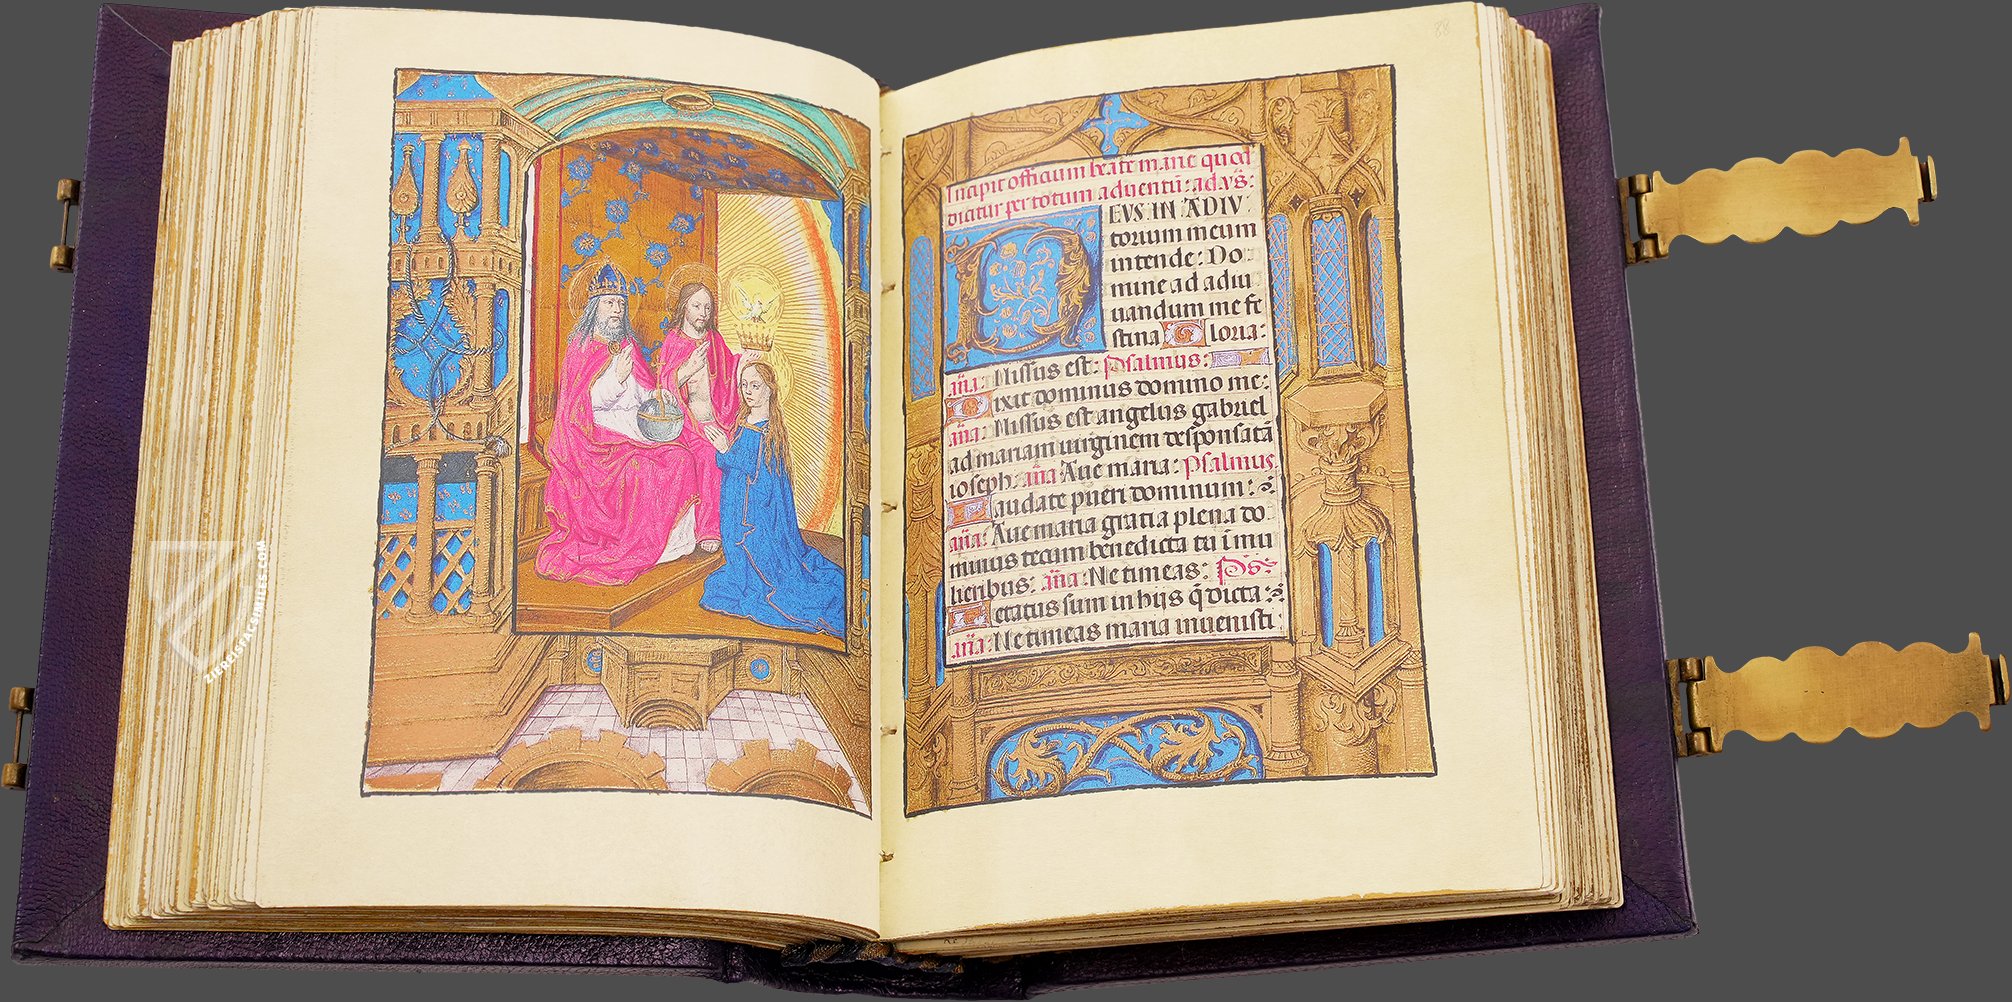 88
Incipit officium beate marie quod
dicitur per totum aduentū: ad vs̄:
DEVS IN ADIV
torium meum
intende: Do
mine ad adiu
uandum me fe
stina Gloria:
an̄a: Missus est: Psalmus:
Dixit dominus domino me:
an̄a: Missus est angelus gabriel
ad mariam uirginem desponsatā
ioseph: an̄a: Aue maria: Psalmus
Laudate pueri dominum:
an̄a: Aue maria gratia plena do
minus tecum benedicta tu ī mu
lieribus: an̄a: Ne timeas: Ps:
Letatus sum in hijs q̄ dicta:
an̄a: Ne timeas maria inuenisti
ZIEREISFACSIMILES.COM